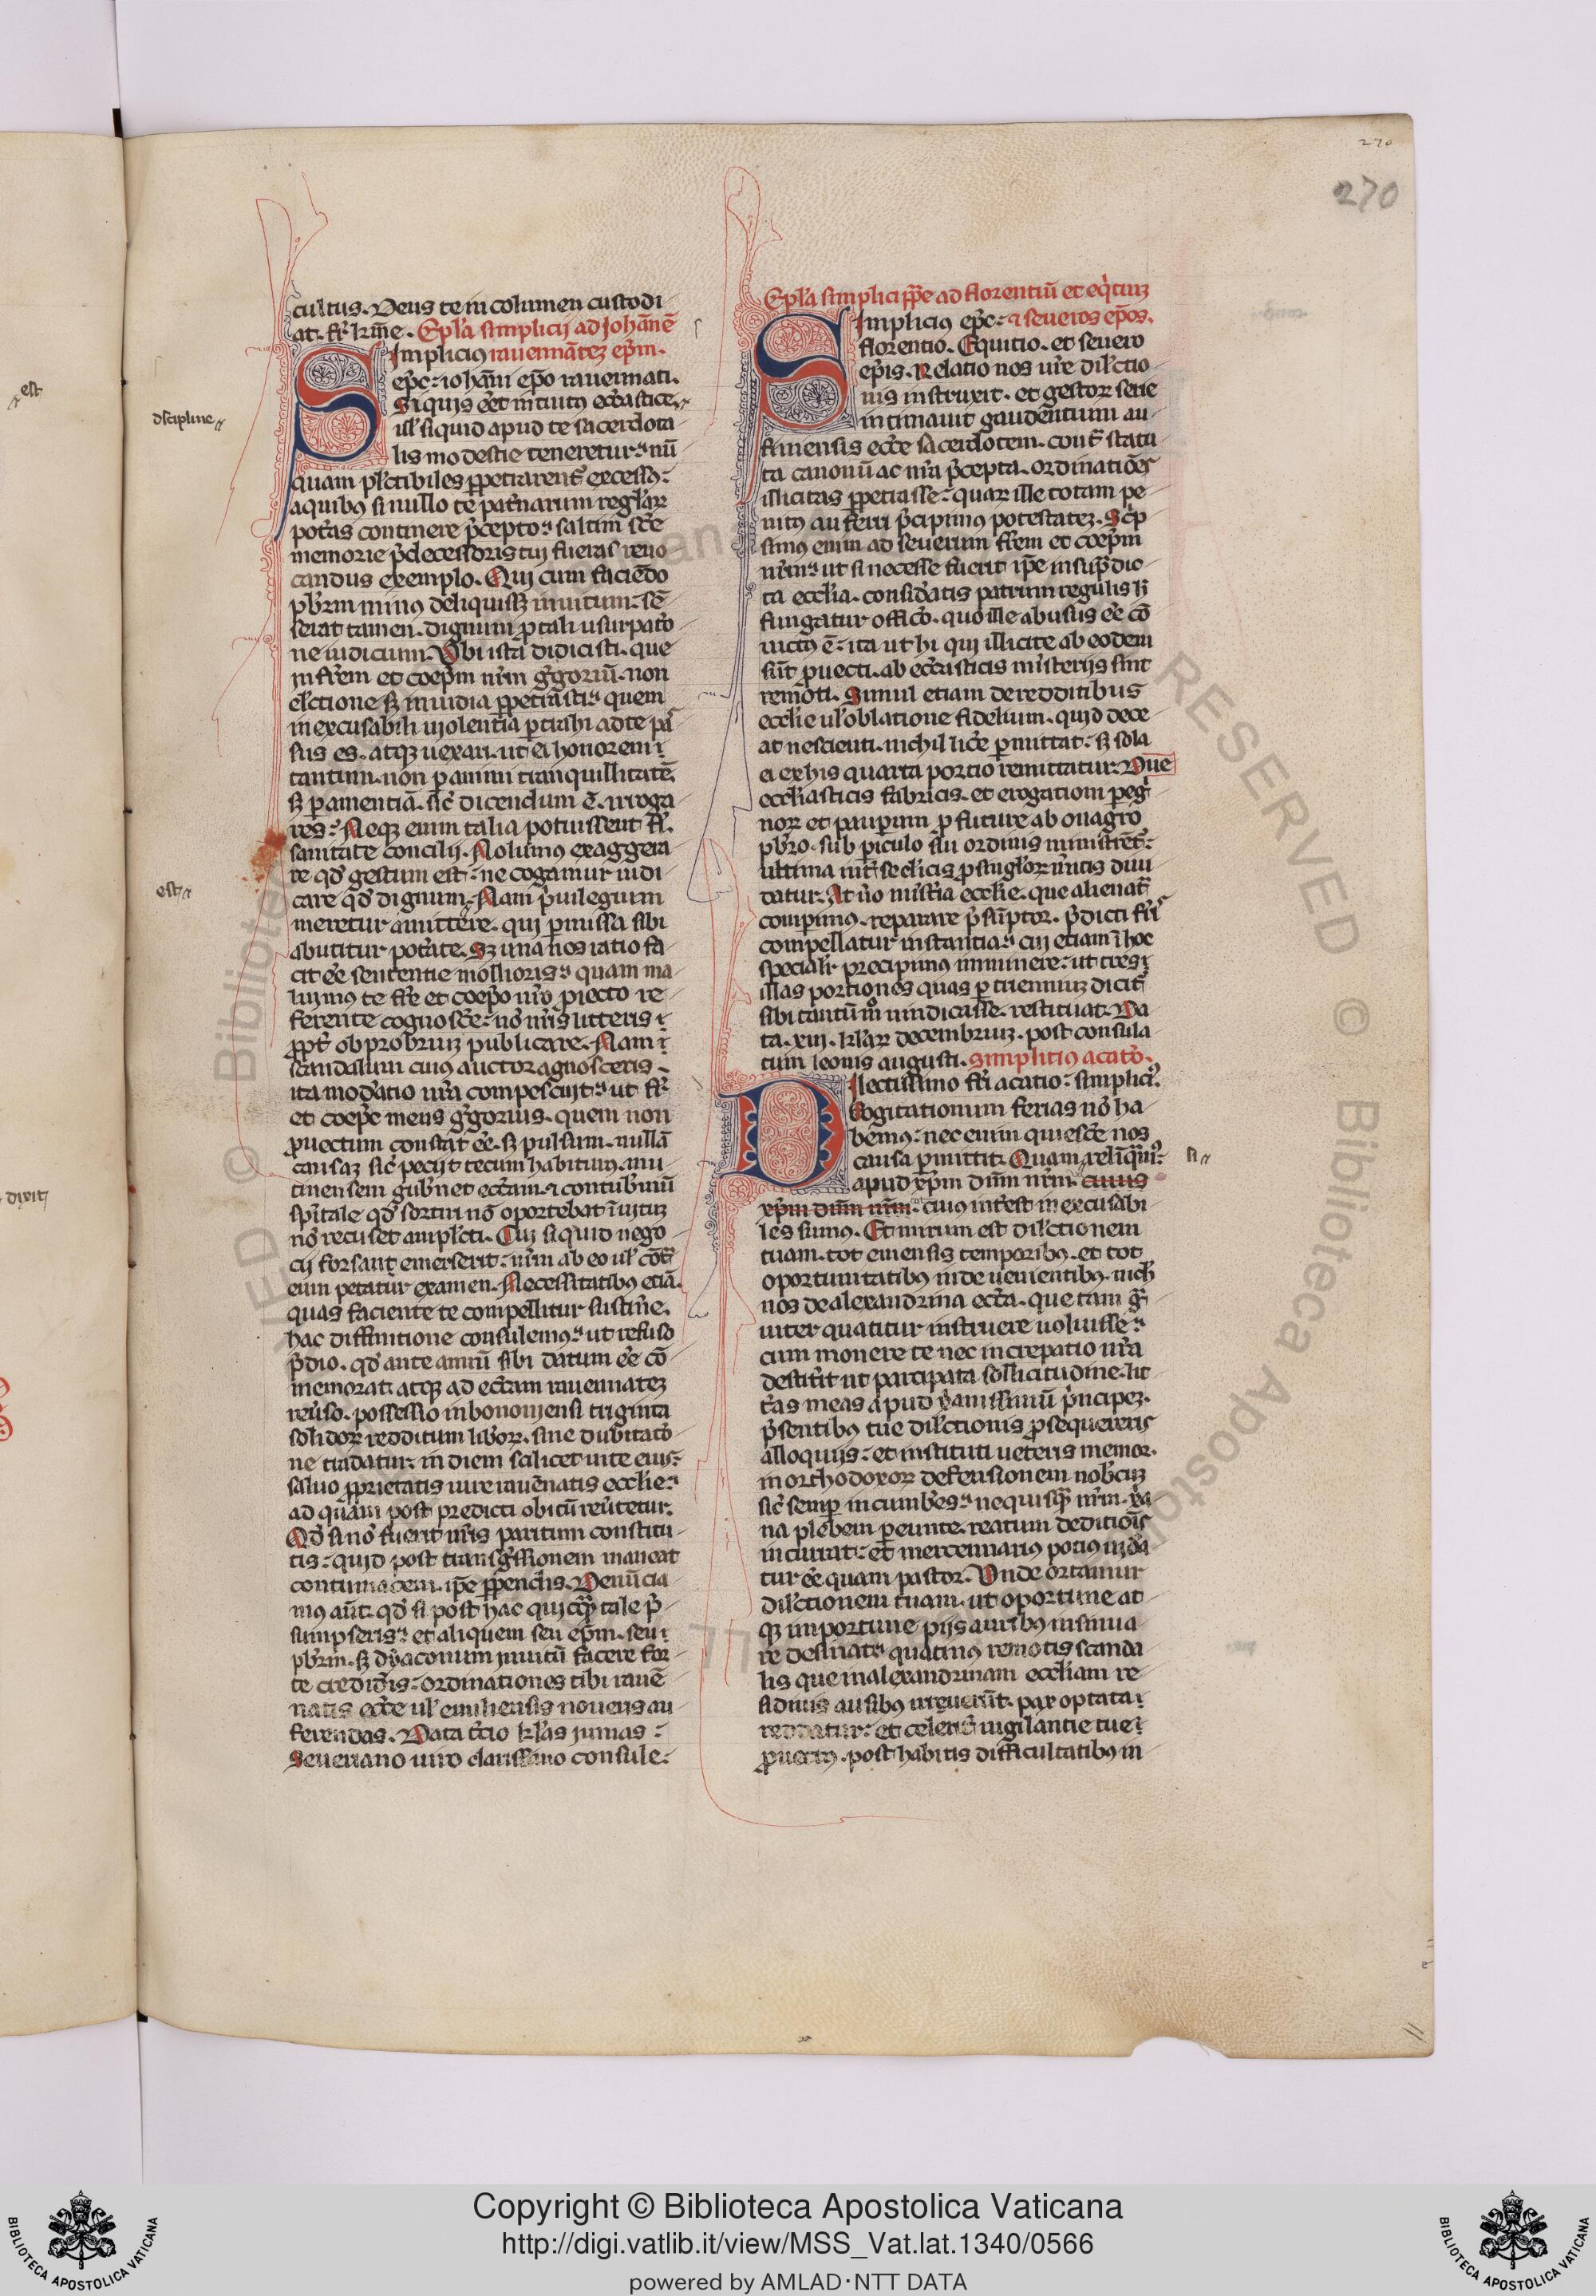 270
270
cultus. Deus te incolumen custodi
at. fr̄ kr̄me. Epl̄a simplicij ad Joħanē
Simplicius rauennātez ep̄m.
ep̄c: ioħāni ep̄o rauennati.
Si quis eēt intuitꝰ ecc̄astice,
ul' si quid apud te sacerdota
lis modestie teneretur: nū
quam pl'ctibiles ꝑpetrarent᷑ excessꝰ:
a quibꝰ si nullo te pat᷑narum regl'aꝝ
pot̄as continere p̄cepto: saltim sc̄e
memorie p̄decessoris tui fueras reuo
candus exemplo. Qui cum faciēdo
pb̄rm minꝰ deliquissꝫ inuitum: sē
serat tamen. dignum ꝑ tali usurpat̄o
ne iudicium. Vbi ista didicisti. que
in fr̄em et coep̄m nr̄m g̓goriū. non
el'ctione sꝫ inuidia ꝑpetrasti: quem
inexcusabili uiolentia ꝑtrahi ad te pas
sus es. atqꝫ uexari. ut ei honorem
tantum. non ꝑ animi tranquillitatē.
sꝫ ꝑ amentiā. sic̄ dicendum ē. irroga
res: Neqꝫ enim talia potuissent fr̄.
sanitate concilij. Nolumus exaggera
re qd̄ gestum est: ne cogamur iudi
care qd̄ dignum. Nam p̓uilegium
meretur amittere. qui ꝑmissa sibi
abutitur pot̄ate. Sꝫ una nos ratio fa
cit eē sententie mollioris: quam ma
luimꝰ te fr̄e et coep̄o nr̄o ꝓiecto re
ferente cognosc̄e: nō nr̄is litteris
ꝓpt᷑ obprobriuꝫ publicare. Nam
scandalum cuius auctor agnosceris
ita mod̄atio nr̄a compescuit: ut fr̄
et coep̄c meus g̓gorius. quem non
ꝓuectum constat eē. sꝫ pulsum. nullā
causaꝫ sic̄ peciit tecum habiturus. mu
tinensem gub̄net ecc̄am. ⁊ contub̄niū
sp̄itale qd̄ sortiri nō oportebat īuituꝫ
nō recuset ampl'cti. Cui si quid nego
cij forsant emerserit: nr̄m ab eo ul' cōt᷑
eum petatur examen. Necessitatibꝰ etiā.
quas faciente te compellitur sustin̄e.
hac diffinitione consulemꝰ: ut refuso
p̄dio. qd̄ ante annū sibi datum eē cō
memorat. atqꝫ ad ecc̄am rauennateꝫ
reu̓so. possessio in bononiensi triginta
solidoꝝ redditum lib̄oꝝ. sine dubitat̄o
ne tradatur: in diem scilicet uite eius:
saluo ꝓprietatis iure rauēnatis eccl̄ie:
ad quam post predicti obitū reu̓tetur.
Qd̄ si nō fuerit nr̄is paritum constitu
tis: quid post transg̓ssionem maneat
contumacem. ip̄e ꝑpendis. Denūcia
mus aūt. qd̄ si post hac quicqꝫ tale p̄
sumpseris: et aliquem seu ep̄m. seu
pb̄rm. sꝫ dyaconum inuitū facere for
te credid̄is: ordinationes tibi rauē
natis ecc̄e ul' emiliensis noueris au
ferendas. Data t̄cio kl'as junias:
Seueriano uiro clarissimo consule:
est
discipline
est
dixit
Epl̄a simplici pp̄e ad florentiū et eq̓tiuꝫ
Simplicius ep̄c: ⁊ seueros ep̄os.
florentio. Equitio. et seuero
ep̄is. Relatio nos ur̄e dil'ctio
nis instruxit. et gestoꝝ serie
intimauit gaudentium au
finensis ecc̄e sacerdotem. cont᷑ statu
ta canonū ac nr̄a p̄cepta. ordinatiōes
illicitas ꝑpetrasse: quaꝝ ille totam pe
nitꝰ auferri p̄cipimus potestateꝫ. Sc̓p
simus enim ad seuerum fr̄em et coep̄m
nr̄m: ut si necesse fuerit ip̄e in sup̄dic
ta eccl̄ia. consid̄atis patrum regulis ħ
fungatur offic̄o. quo ille abusus eē cō
uictꝰ ē: ita ut hi qui illicite ab eodem
sūt ꝓuecti. ab ecc̄asticis mīsterijs sint
remoti. Simul etiam de redditibus
eccl̄ie ul' oblatione fidelium. quid dece
at nescienti. nichil lic̄e ꝑmittat: sꝫ sola
ei ex his quarta portio remittatur. Due
eccl̄iasticis fabricis. et erogationi ꝑeg̓
noꝝ et pauꝑum ꝓfuture ab onagro
pb̄ro. sub ꝑiculo sui ordinis ministrēt᷑:
ultima int᷑ se clicis ꝑ singl'oꝝ m̓itis diui
datur. At u̓o mīst̄ia eccl̄ie. que alienat᷑
comperimꝰ. reparare p̄sūptor. p̄dicti fr̄is
compellatur instantia: cui etiam ī hoc
speciali᷑ precipimus imminere: ut tres
illas portiones quas ꝑ trienniuꝫ dicit᷑
sibi tantūmō uindicasse. restituat. Da
ta. xiij. kl'aꝝ decembriuꝫ. post consula
tum leonis augusti. Simplitius acat̄o.
Dilectissimo fr̄i acatio: simplicꝰ.
Cogitationum ferias nō ha
bemꝰ: nec enim quiesc̄e nos
causa ꝑmittit. Quam relīq̓mꝰ:
si
apud xp̄m dūm nr̄m. cuius
xp̄m dūm nr̄m: cuius int̓est inexcusabi
les sumꝰ. Et mirum est dil'ctionem
tuam. tot emensis temporibꝰ. et tot
oportunitatibus inde uenientibꝰ. nicħ
nos de alexandrina ecc̄a. que tam g̓
uiter quatitur instruere uoluisse:
cum monere te nec increpatio nr̄a
destit̓it ut parcipata sollicitudine. lit
t̄as meas apud xp̄anissimū p̓ncipeꝫ.
p̄sentibꝰ tue dil'ctionis ꝓsequereris
alloquijs: et instituti ueteris memor.
in orthodoxoꝝ defensionem nob̄cuꝫ
sic̄ semp̄ incumb̄es: nequisqꝫ nr̄m. xp̄a
na plebem ꝑeunte. reatum deditiōis
incurrat: et mercennarius potius uid̄a
tur eē quam pastor. Vnde ortamur
dil'ctionem tuam. ut oportune at
qꝫ inportune pijs auribꝰ insinua
re desinat: quatinus remotis scanda
lis que in alexandrinam eccl̄iam re
sidiuis ausibꝰ irruerūt. pax optata
reddatur: et celerit᷑ uigilantie tue
ꝓuectꝰ. post habitis difficultatibꝰ in
Copyright © Biblioteca Apostolica Vaticana
http://digi.vatlib.it/view/MSS_Vat.lat.1340/0566
powered by AMLAD·NTT DATA
BIBLIOTECA APOSTOLICA VATICANA
BIBLIOTECA APOSTOLICA VATICANA